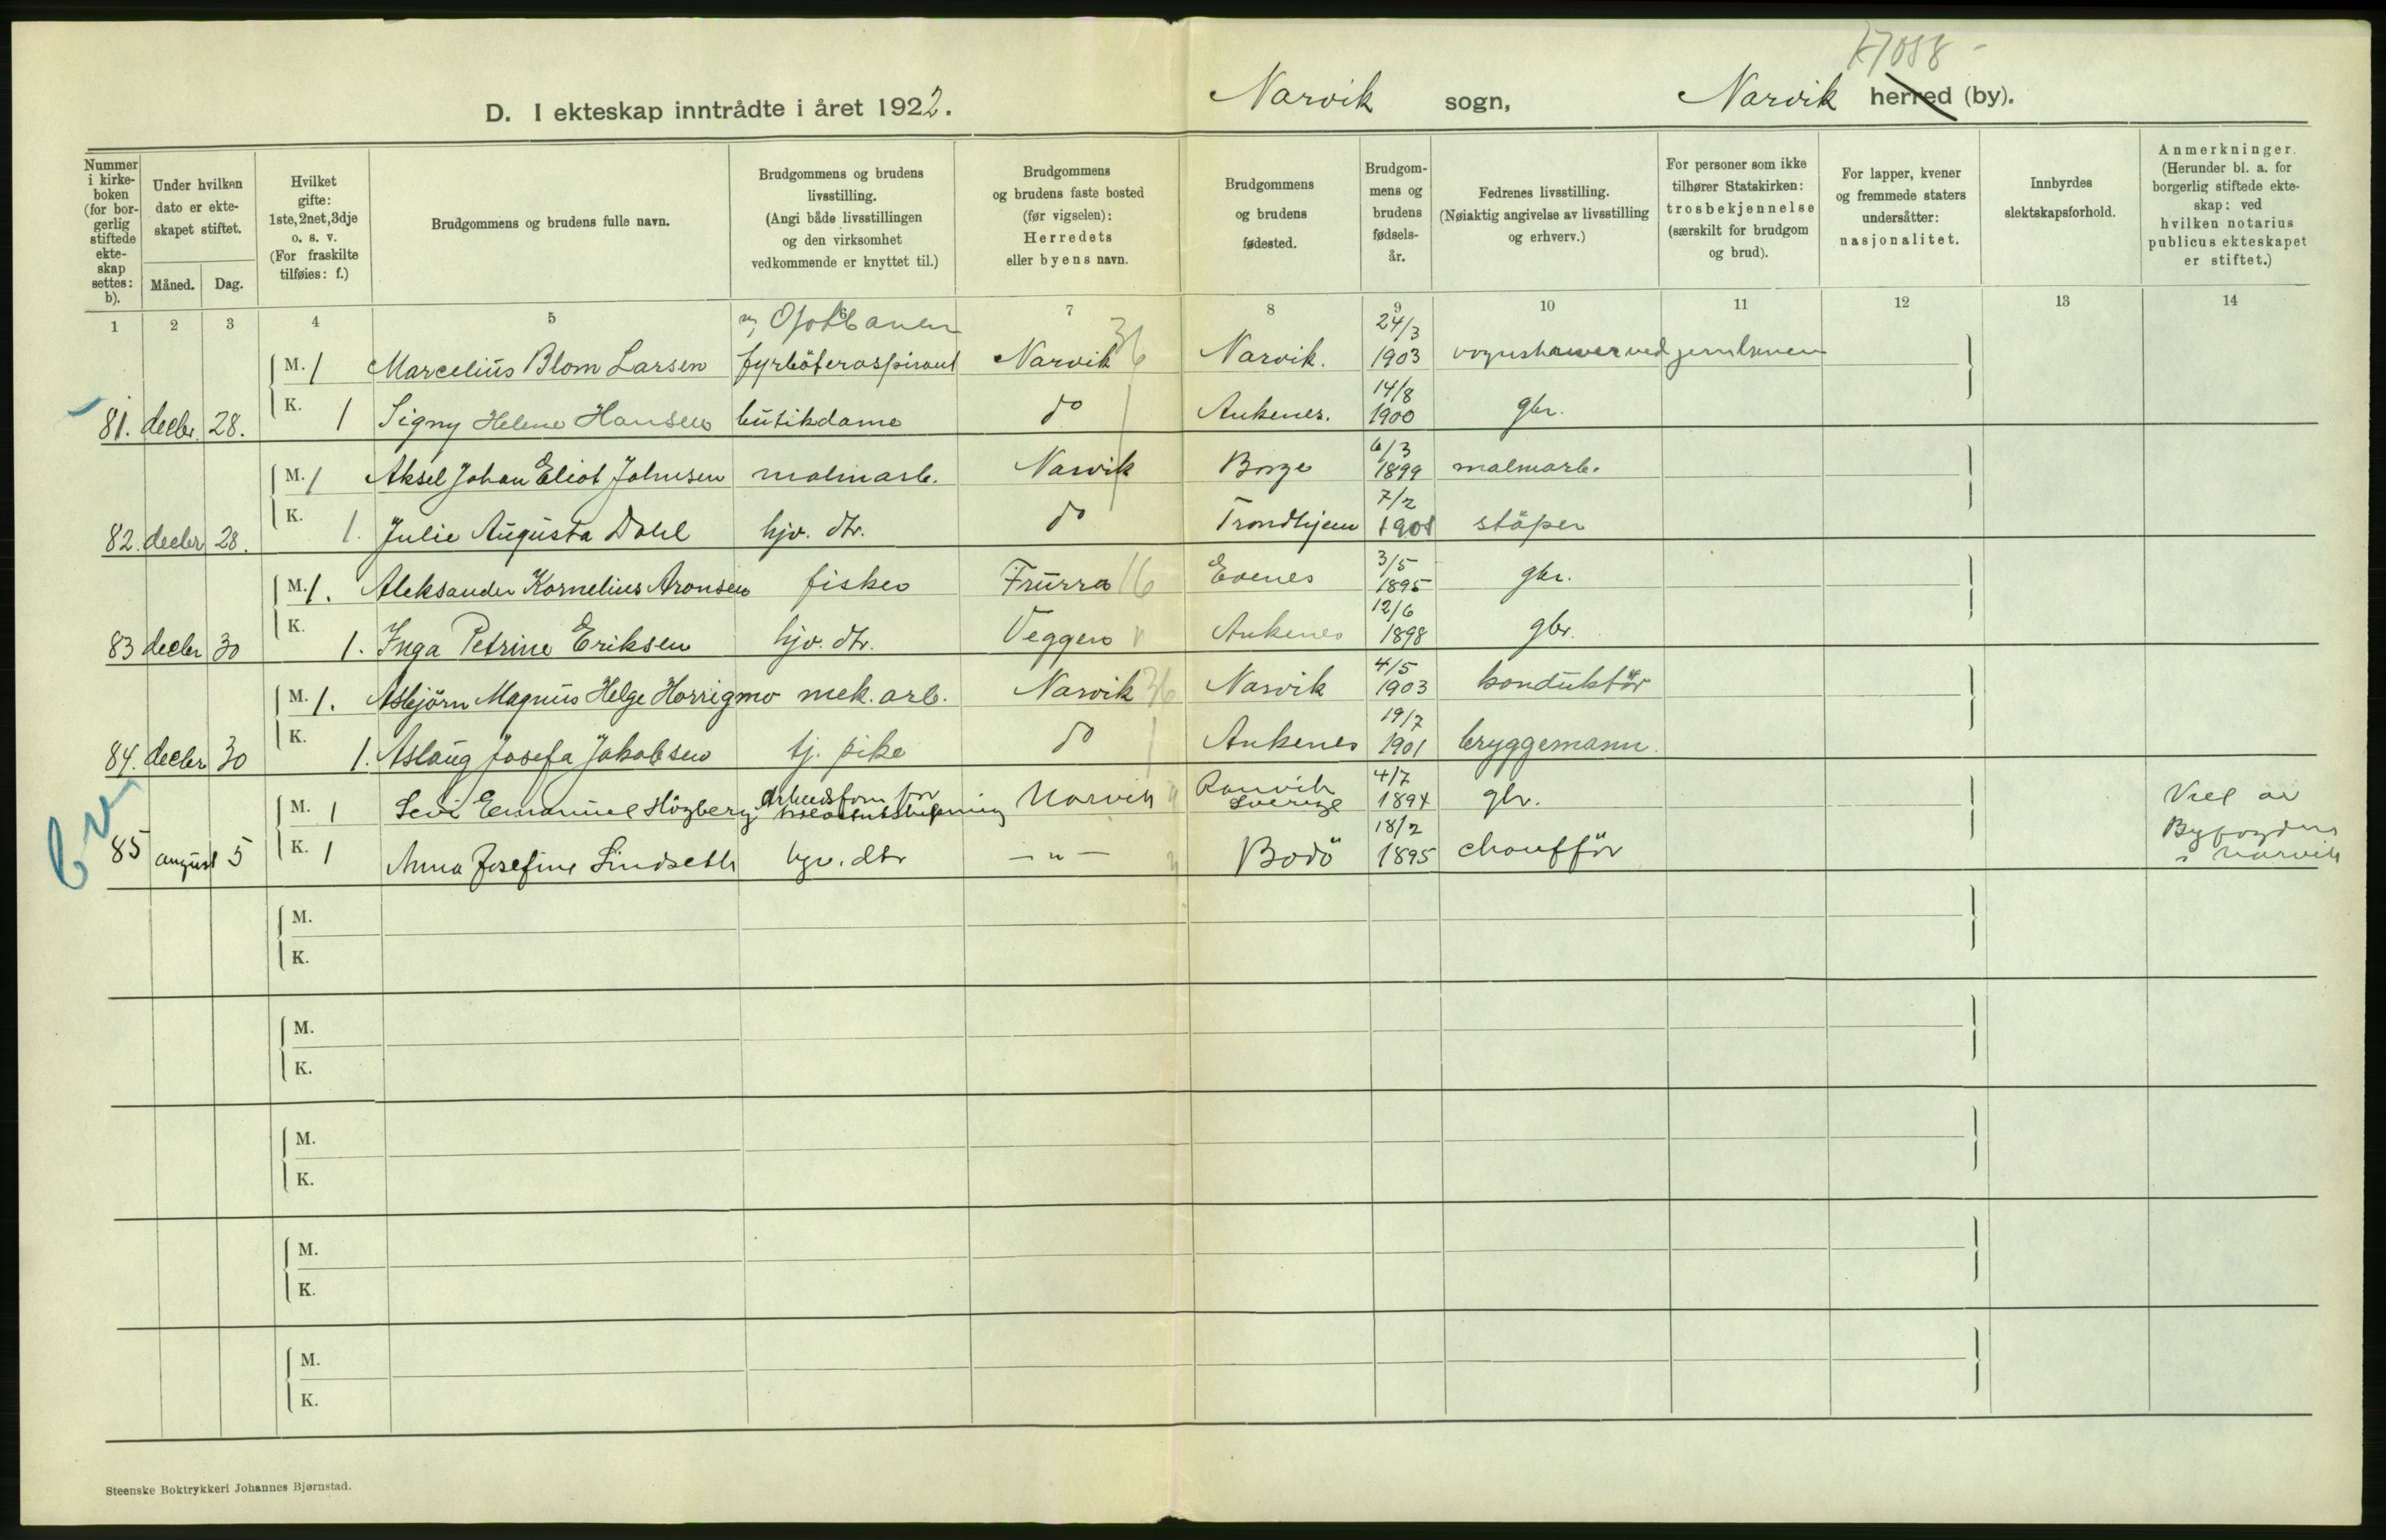 D. I ekteskap inntrådte i året 1922.
Narvik sogn, Narvik herred (by).
Nummer i kirkeboken (for borgerlig stiftede ekteskap settes: b).
Under hvilken dato er ekteskapet stiftet.
Måned. Dag.
Hvilket gifte: 1ste, 2net, 3dje o. s. v. (For fraskilte tilføies: f.)
Brudgommens og brudens fulle navn.
Brudgommens og brudens livsstilling. (Angi både livsstillingen og den virksomhet vedkommende er knyttet til.)
Brudgommens og brudens faste bosted (før vigselen): Herredets eller byens navn.
Brudgommens og brudens fødested.
Brudgommens og brudens fødselsår.
Fedrenes livsstilling. (Nøiaktig angivelse av livsstilling og erhverv.)
For personer som ikke tilhører Statskirken: trosbekjennelse (særskilt for brudgom og brud).
For lapper, kvener og fremmede staters undersåtter: nasjonalitet.
Innbyrdes slektskapsforhold.
Anmerkninger. (Herunder bl. a. for borgerlig stiftede ekteskap: ved hvilken notarius publicus ekteskapet er stiftet.)
1 2 3 4 5 6 7 8 9 10 11 12 13 14
Ofotbanen 24/3
M. 1 Marcelius Blom Larsen fyrböteraspirant Narvik 36 Narvik. 1903
14/8
81. decbr. 28. K. 1 Signy Helene Hansen butikdame do Ankenes. 1900 gbr.
6/3
M. 1 Aksel Johan Eliot Johnsen malmarb. Narvik Borge 1899 malmarb.
7/2
82. decbr 28. K. 1. Julie Augusta Dahl hjv. dtr. do Trondhjem 1901 støper
3/5
M. 1. Aleksander Kornelius Aronsen fisker 16 Evenes 1895 gbr.
12/6
83 decbr 30 K. 1. Inga Petrine Eriksen hjv. dtr. Veggen Ankenes 1898 gbr.
4/5
M. 1. Asbjörn Magnus Helge Horrigmo mek. arb. Narvik 36 Narvik 1903 konduktör
19/7
84. decbr 30 K. 1. Aslaug Josefa Jakobsen tj. pike do Ankenes 1901 bryggemann.
4/7
M. 1 Levi Emanuel Högberg Narvik Sverige 1894 gbr. Viet av
18/2 Byfogden
85 august 5 K. 1 Anna Josefine Lindseth hjv. dtr — " — Bodö 1895 chófför i Narvik
M.
K.
M.
K.
M.
K.
M.
K.
M.
K.
Steenske Boktrykkeri Johannes Bjørnstad.